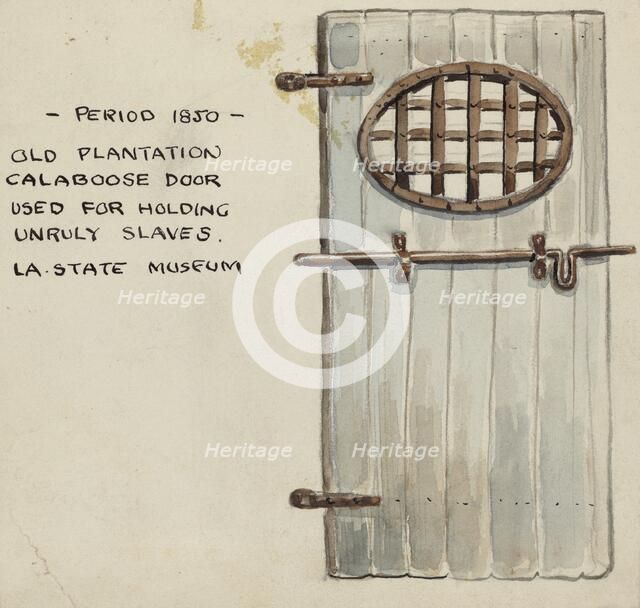 - PERIOD 1850 -
OLD PLANTATION
CALABOOSE DOOR
USED FOR HOLDING
UNRULY SLAVES.
LA. STATE MUSEUM
Heritage Heritage
©
Heritage Heritage
Heritage Heritage